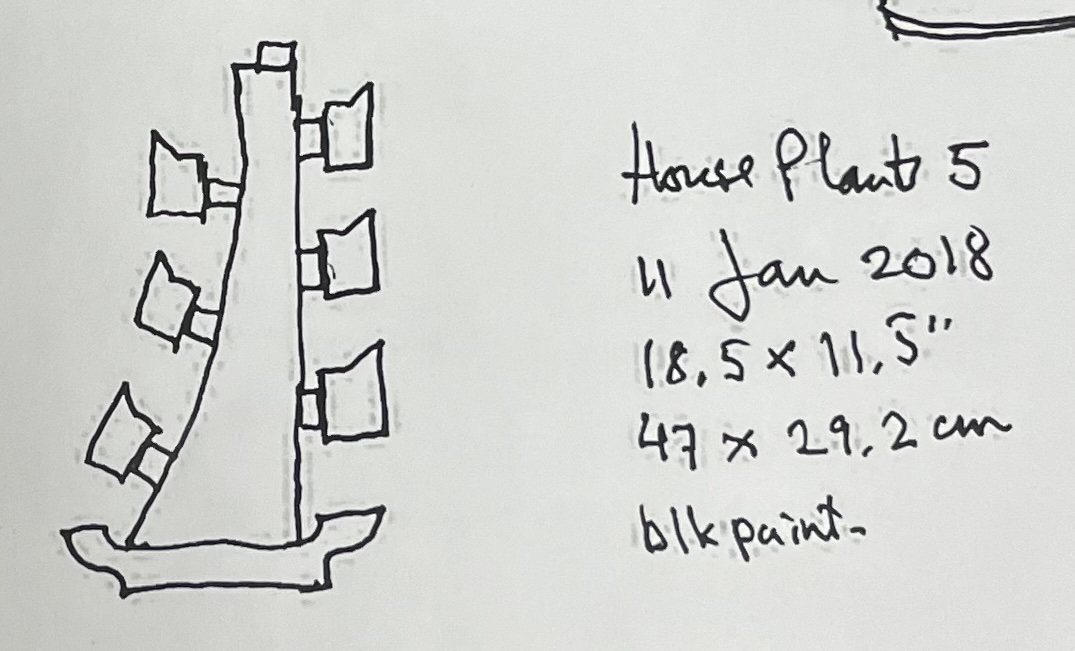 House Plant 5
11 Jan 2018
18.5 x 11.5"
47 x 29.2 cm
blk paint.